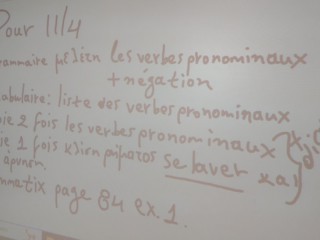 Pour 11/4
rammaire μελέτη les verbes pronominaux
+ négation
abulaire: liste des verbes pronominaux
ie 2 fois les verbes pronominaux
ie 1 fois κλίση ρήματος se laver και
άρνηση.
mmatix page 84 ex. 1.